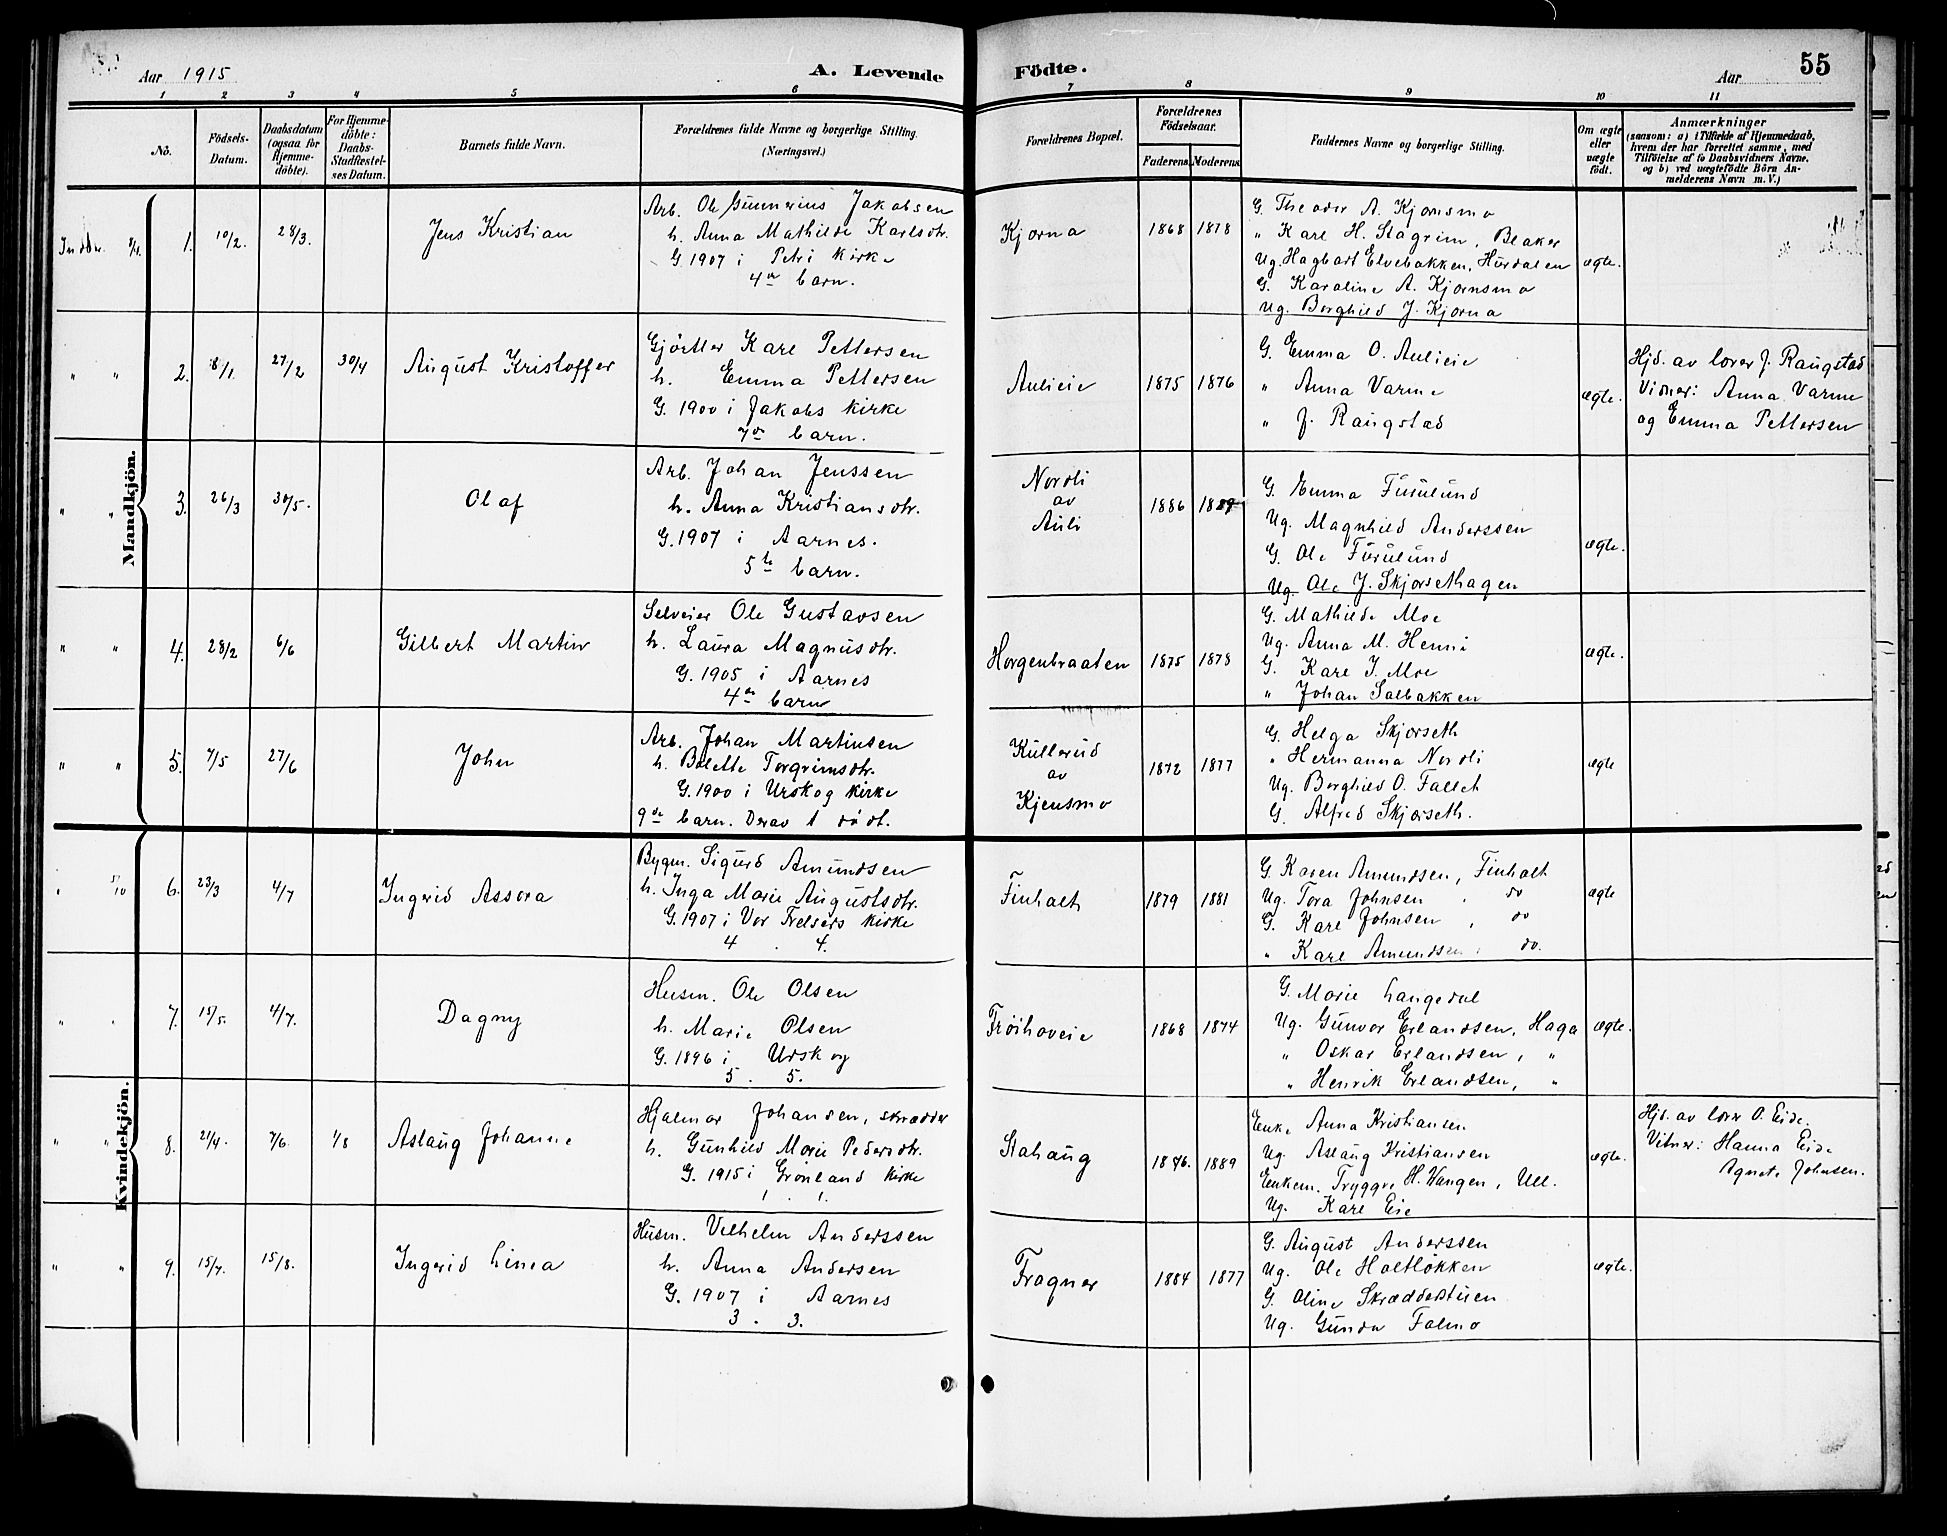 Aar 1915
A. Levende
Födte.
Aar
55
1 2 3 4 5 6 7 8 9 10 11
No.
Födsels-
Datum.
Daabsdatum
(ogsaa for
Hjemme-
döbte).
For Hjemme-
döbte:
Daabs-
Stadfæstel-
ses Datum.
Barnets fulde Navn.
Forældrenes fulde Navne og borgerlige Stilling.
(Næringsvei.)
Forældrenes Bopæl.
Forældrenes
Födselsaar.
Faderens. Moderens.
Faddernes Navne og borgerlige Stilling.
Om ægte
eller
uægte
födt.
Anmærkninger
(saasom: a) i Tilfælde af Hjemmedaab,
hvem der har forrettet samme, med
Tilföielse af to Daabsvidners Navne.
og b) ved uægtefödte Börn An-
melderens Navn m. V.)
Mandkjön.
1. 10/2. 28/3.
Jens Kristian
Arb. Ole Gunnerius Jakobsen
h. Anna Mathilde Karlsdtr.
G. 1907 i Petri Kirke
4de barn.
Kjorna
1868 1878
G. Theodor A. Kjonsmo
" Karl H. Stagrim, Blaker
Ug. Hagbart Elvebakken, Hurdalen
G. Karoline A. Kjornsmo
Ug. Borghild J. Kjorna
ægte.
" " 2. 8/1. 27/2 30/4
August Kristoffer
Gjörtler Karl Pettersen
h. Emma Pettersen
G. 1900 i Jakobs Kirke
7de barn.
Aulieie
1875 1876
G. Emma O. Aulieie
" Anna Varme
" J. Raugstad
ægte.
Hjd. av lærer J. Raugstad
Vidner: Anna Varme
og Emma Pettersen
" " 3. 26/3 30/5.
Olaf
Arb. Johan Jenssen
h. Anna Kristiansdtr.
G. 1907 i Aarnes.
5te barn.
Nordli
av
Auli
1886 1889
G. Emma Furulund
Ug. Magnhild Anderssen
G. Ole Furulund
Ug. Ole J. Skjorsethagen
ægte.
" " 4. 28/2 6/6
Gilbert Martin
Selveier Ole Gustavsen
h. Laura Magnusdtr.
G. 1905 i Aarnes
4de barn
Horgenbraaten
1875 1878
G. Mathilde Moe
Ug. Anna M. Henni
G. Karl J. Moe
" Johan Salbakken
ægte.
" " 5. 7/5 27/6
John
Arb. Johan Martinsen
h. Bolette Torgrimsdtr.
G. 1900 i Urskog Kirke
9de barn. Derav 1 dödt.
Kullerud
av
Kjensmo
1872 1877
G. Helga Skjorseth
" Hermanna Nordli
Ug. Borghild O. Fallet
G. Alfred Skjorseth.
ægte
Kvindekjön.
6. 23/3 4/7
Ingrid Assora
Bygm. Sigurd Amundsen
h. Inga Marie Augustsdtr.
G. 1907 i Vor Frelsers Kirke
4 . 4.
Finholt
1879 1881
G. Karen Amundsen, Finholt
Ug. Tora Johnsen , do
G. Karl Johnsen , do
" Karl Amundsen , do.
ægte
" " 7. 15/5. 4/7.
Dagny
Husm. Ole Olsen
h. Marie Olsen
G. 1896 i Urskog
5 . 5.
Tröihoveie
1868 1874
G. Marie Langedal
Ug. Gunvor Erlandsen, Haga
" Oskar Erlandsen, "
" Henrik Erlandsen, "
ægte.
" " 8. 21/4. 7/6. 1/8
Aslaug Johanne
Hjalmar Johansen, skrædder
h. Gunhild Marie Pedersdtr.
G. 1915 i Grönland Kirke
1 . 1.
Stahaug
1889
Enke Anna Kristiansen
Ug. Aslaug Kristiansen
Enkem. Tryggve H. Wangen, Ull.
Ug. Karl Eie
ægte.
Hjd. av lærer O. Eide.
Vitner: Hanna Eide
Agnete Johnsen.
" " 9. 15/7. 15/8.
Ingrid Linea
Husm. Vilhelm Anderssen
h. Anna Andersen
G. 1907 i Aarnes
3 . 3.
Frogner
1884 1877
G. August Anderssen
Ug. Ole Holtlökken
G. Oline Skrædderstuen
Ug. Gunda Falmo
ægte.